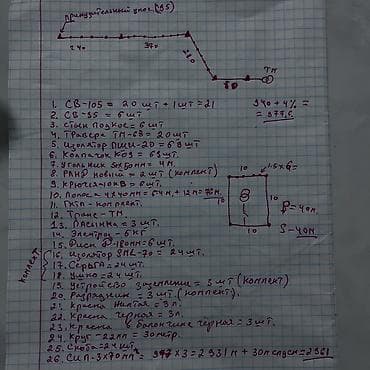 240
370
210
80
ТМ
1. СВ-105 = 20 шт + 1 шт = 21
940 + 4% =
= 977,6
2. СВ-95 = 6 шт
3. Стой Поднос = 6 шт
4. Траверс ТМ-63 = 20 шт
5. Изолятор ПШН-20 = 63 шт
6. Колпачок К03 = 63 шт.
7. Угольник 50х50мм = 4м.
8. РЛНД новый = 2 шт (комплект)
9. = 6 шт.
10. Полоса 4х40мм = 64м + 12м = 76м.
11. ПКТ - комплект.
12. Транс - ТМ.
13. = 3 шт.
14. Электрод - 6 кг
15. Диск Ф-180мм = 6 шт.
16. Изолятор SML-70 = 24 шт.
17. Серьга = 24 шт.
18. Ушко = 24 шт.
19. Устройство заземление = 3 шт (комплект)
20. Разрядник = 3 шт (комплект).
21. Краска Желтая = 3л
22. Краска чёрная = 3л.
23. Краска в балончике чёрная = 3шт.
24. Круг - 22мм = 30метр.
25. Скоба = 24 шт.
26. СИП-3х70мм² = 977 х 3 = 2931м + 30м спуск = 2961
Комплект
10
1.5 х 6 =
10
10
10
P = 40м.
S - 40м